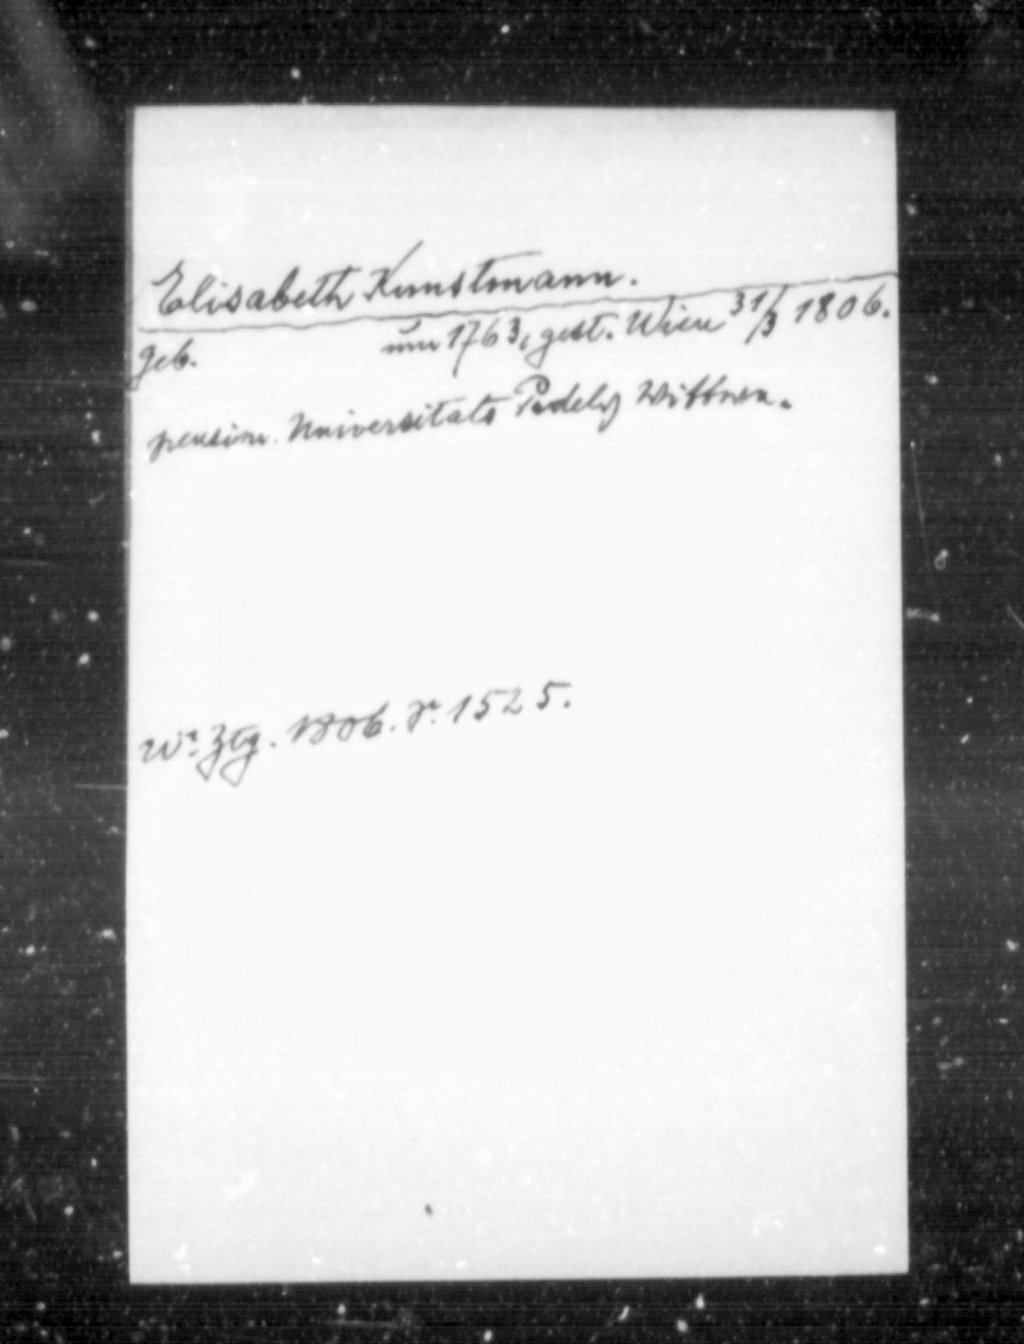 Elisabeth Kunstmann.
geb. um 1763, gest. Wien 31/3 1806.
pension. Universitäts Pedels Wittwe.
Wr. Ztg. 1806. S. 1525.